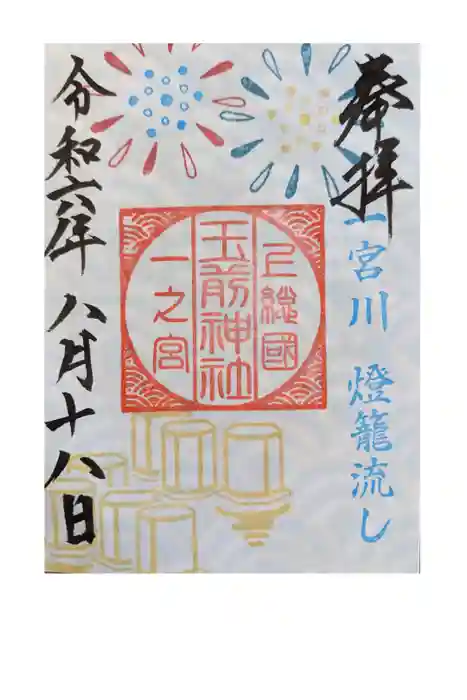 奉拝
一宮川 燈籠流し
上総國
玉前神社
一之宮
令和六年 八月十八日